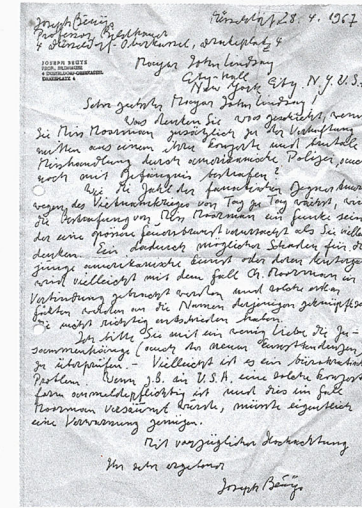 Joseph Beuys Düsseldorf 28.4.1967
Professor Bildhauer
4 Düsseldorf-Oberkassel, Drakeplatz 4
JOSEPH BEUYS
PROF. BILDHAUER
4 DÜSSELDORF-OBERKASSEL
DRAKEPLATZ 4
Mayor John Lindsay
City-Hall
New York City. N.Y. U.S.
Sehr geehrter Mayor John Lindsay!
Was denken Sie was geschieht, wenn
Sie Miss Moorman zusätzlich zu der Verhaftung
mitten aus einem ihrer Konzerte und brutale
Misshandlung durch amerikanische Polizei, auch
noch mit Gefängnis bestrafen?
Wie die Zahl der fanatischen Gegner
wegen des Vietnamkrieges von Tag zu Tag wächst, wird
die Bestrafung von Miss Moorman ein Funke sein
der eine grössere Feuersbrunst verursacht als Sie vielleicht
denken. Ein dadurch möglicher Schaden für die
junge amerikanische Kunst oder deren
wird vielleicht mit dem Fall Ch. Moorman in
Verbindung gebracht werden und solche
werden an die Namen derjenigen geknüpft
die nicht richtig entschieden haben.
Ich bitte Sie mit ein wenig Liebe die Zu-
sammenhänge (auch des neuen
zu überprüfen. - Vielleicht ist es ein bürokratisches
Problem. Wenn z.B. in U.S.A. eine solche Konzert
form anmeldepflichtig ist und dies im Fall
Moorman versäumt wurde, müsste eigentlich
eine Verwarnung genügen.
Mit vorzüglicher Hochachtung
Ihr sehr ergebener
Joseph Beuys